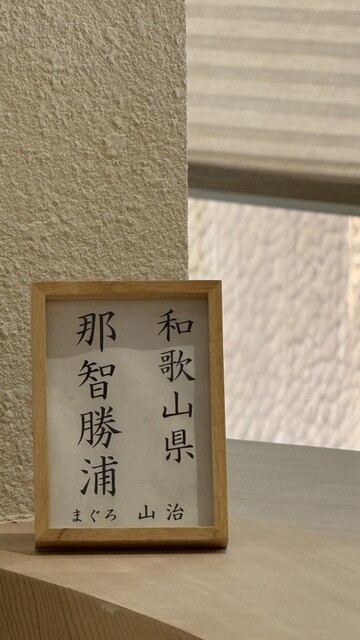 和歌山県
那智勝浦
まぐろ 山治